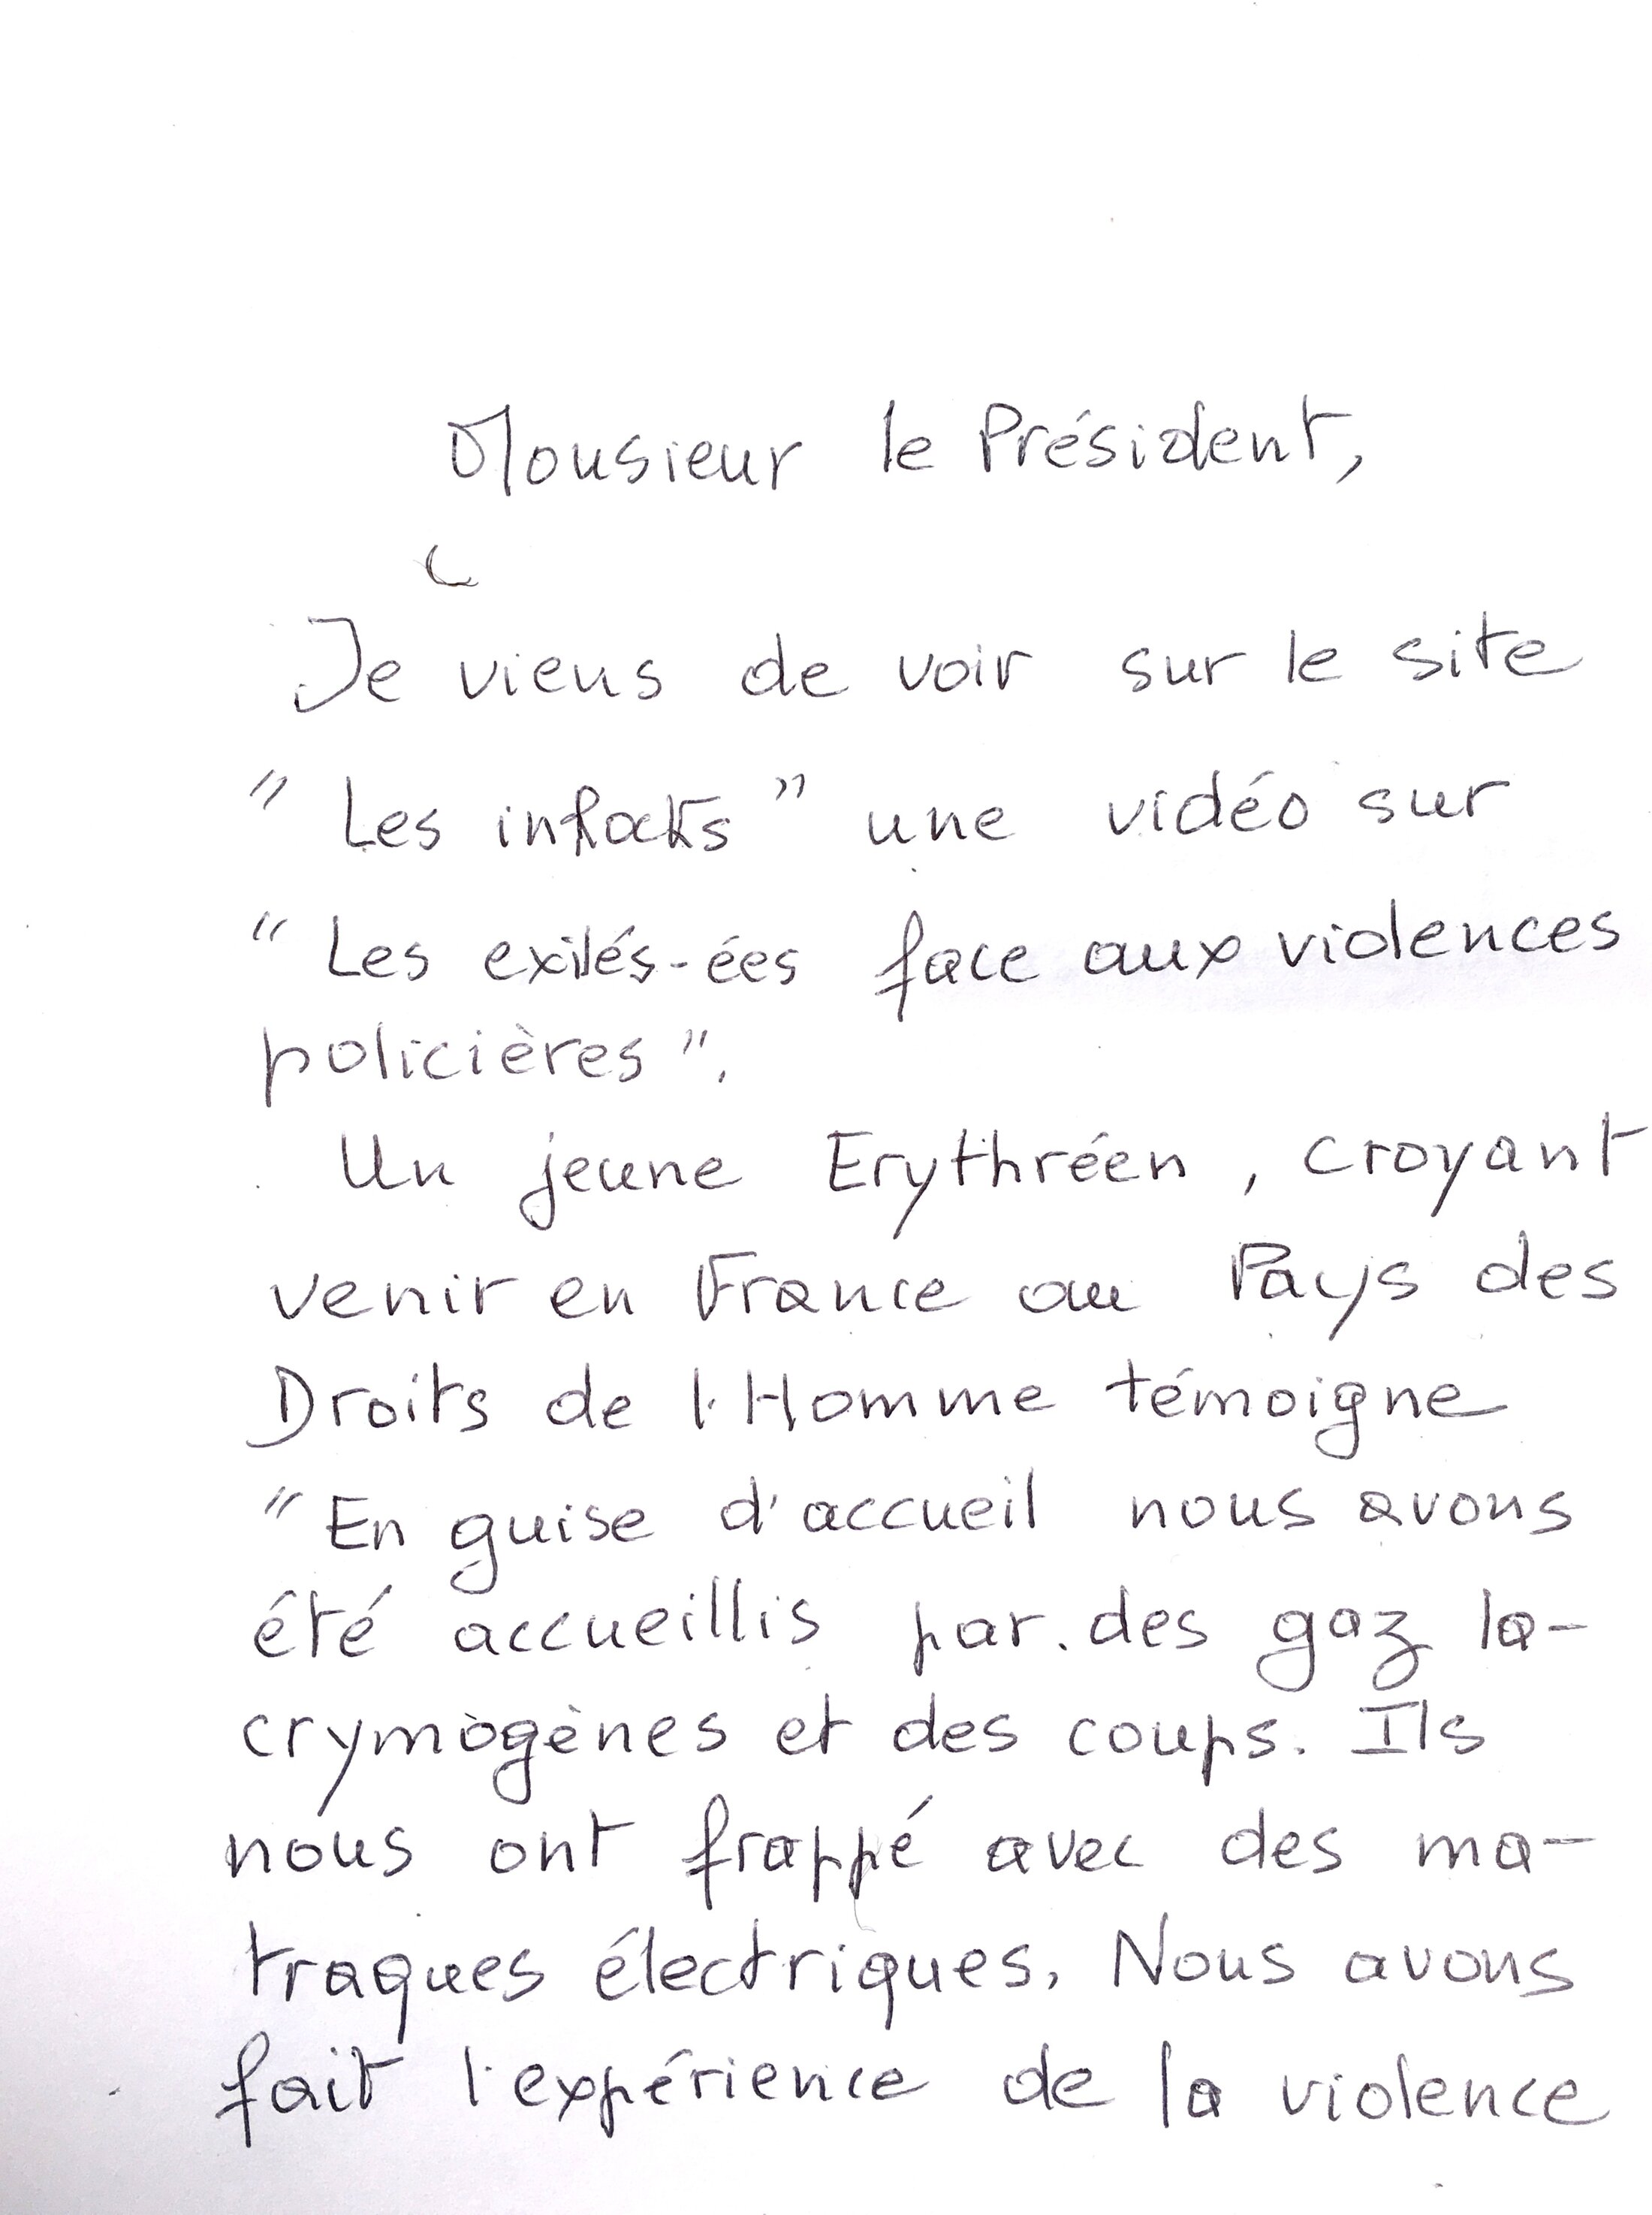 Monsieur le Président,
Je viens de voir sur le site
" Les " une vidéo sur
" Les exilés-ées face aux violences
policières ".
Un jeune Erythréen, croyant
venir en France au Pays des
Droits de l'Homme témoigne
" En guise d'accueil nous avons
été accueillis par des gaz la-
crymogènes et des coups. Ils
nous ont frappé avec des ma-
traques électriques. Nous avons
fait l'expérience de la violence